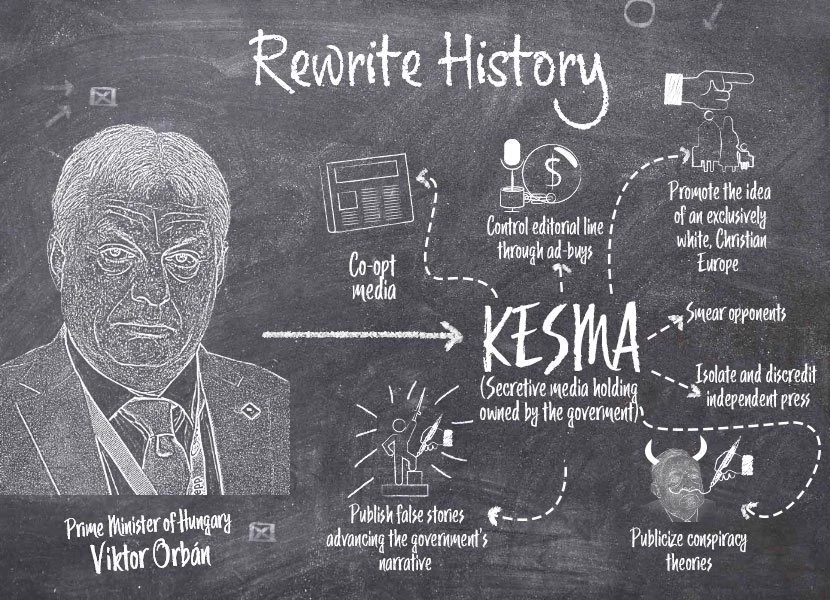 Rewrite History
Co-opt
media
Control editorial line
through ad-buys
$
Promote the idea
of an exclusively
white, Christian
Europe
KESMA
(Secretive media holding
owned by the goverment)
Smear opponents
Isolate and discredit
independent press
Publish false stories
advancing the government's
narrative
Publicize conspiracy
theories
Prime Minister of Hungary
Viktor Orbán